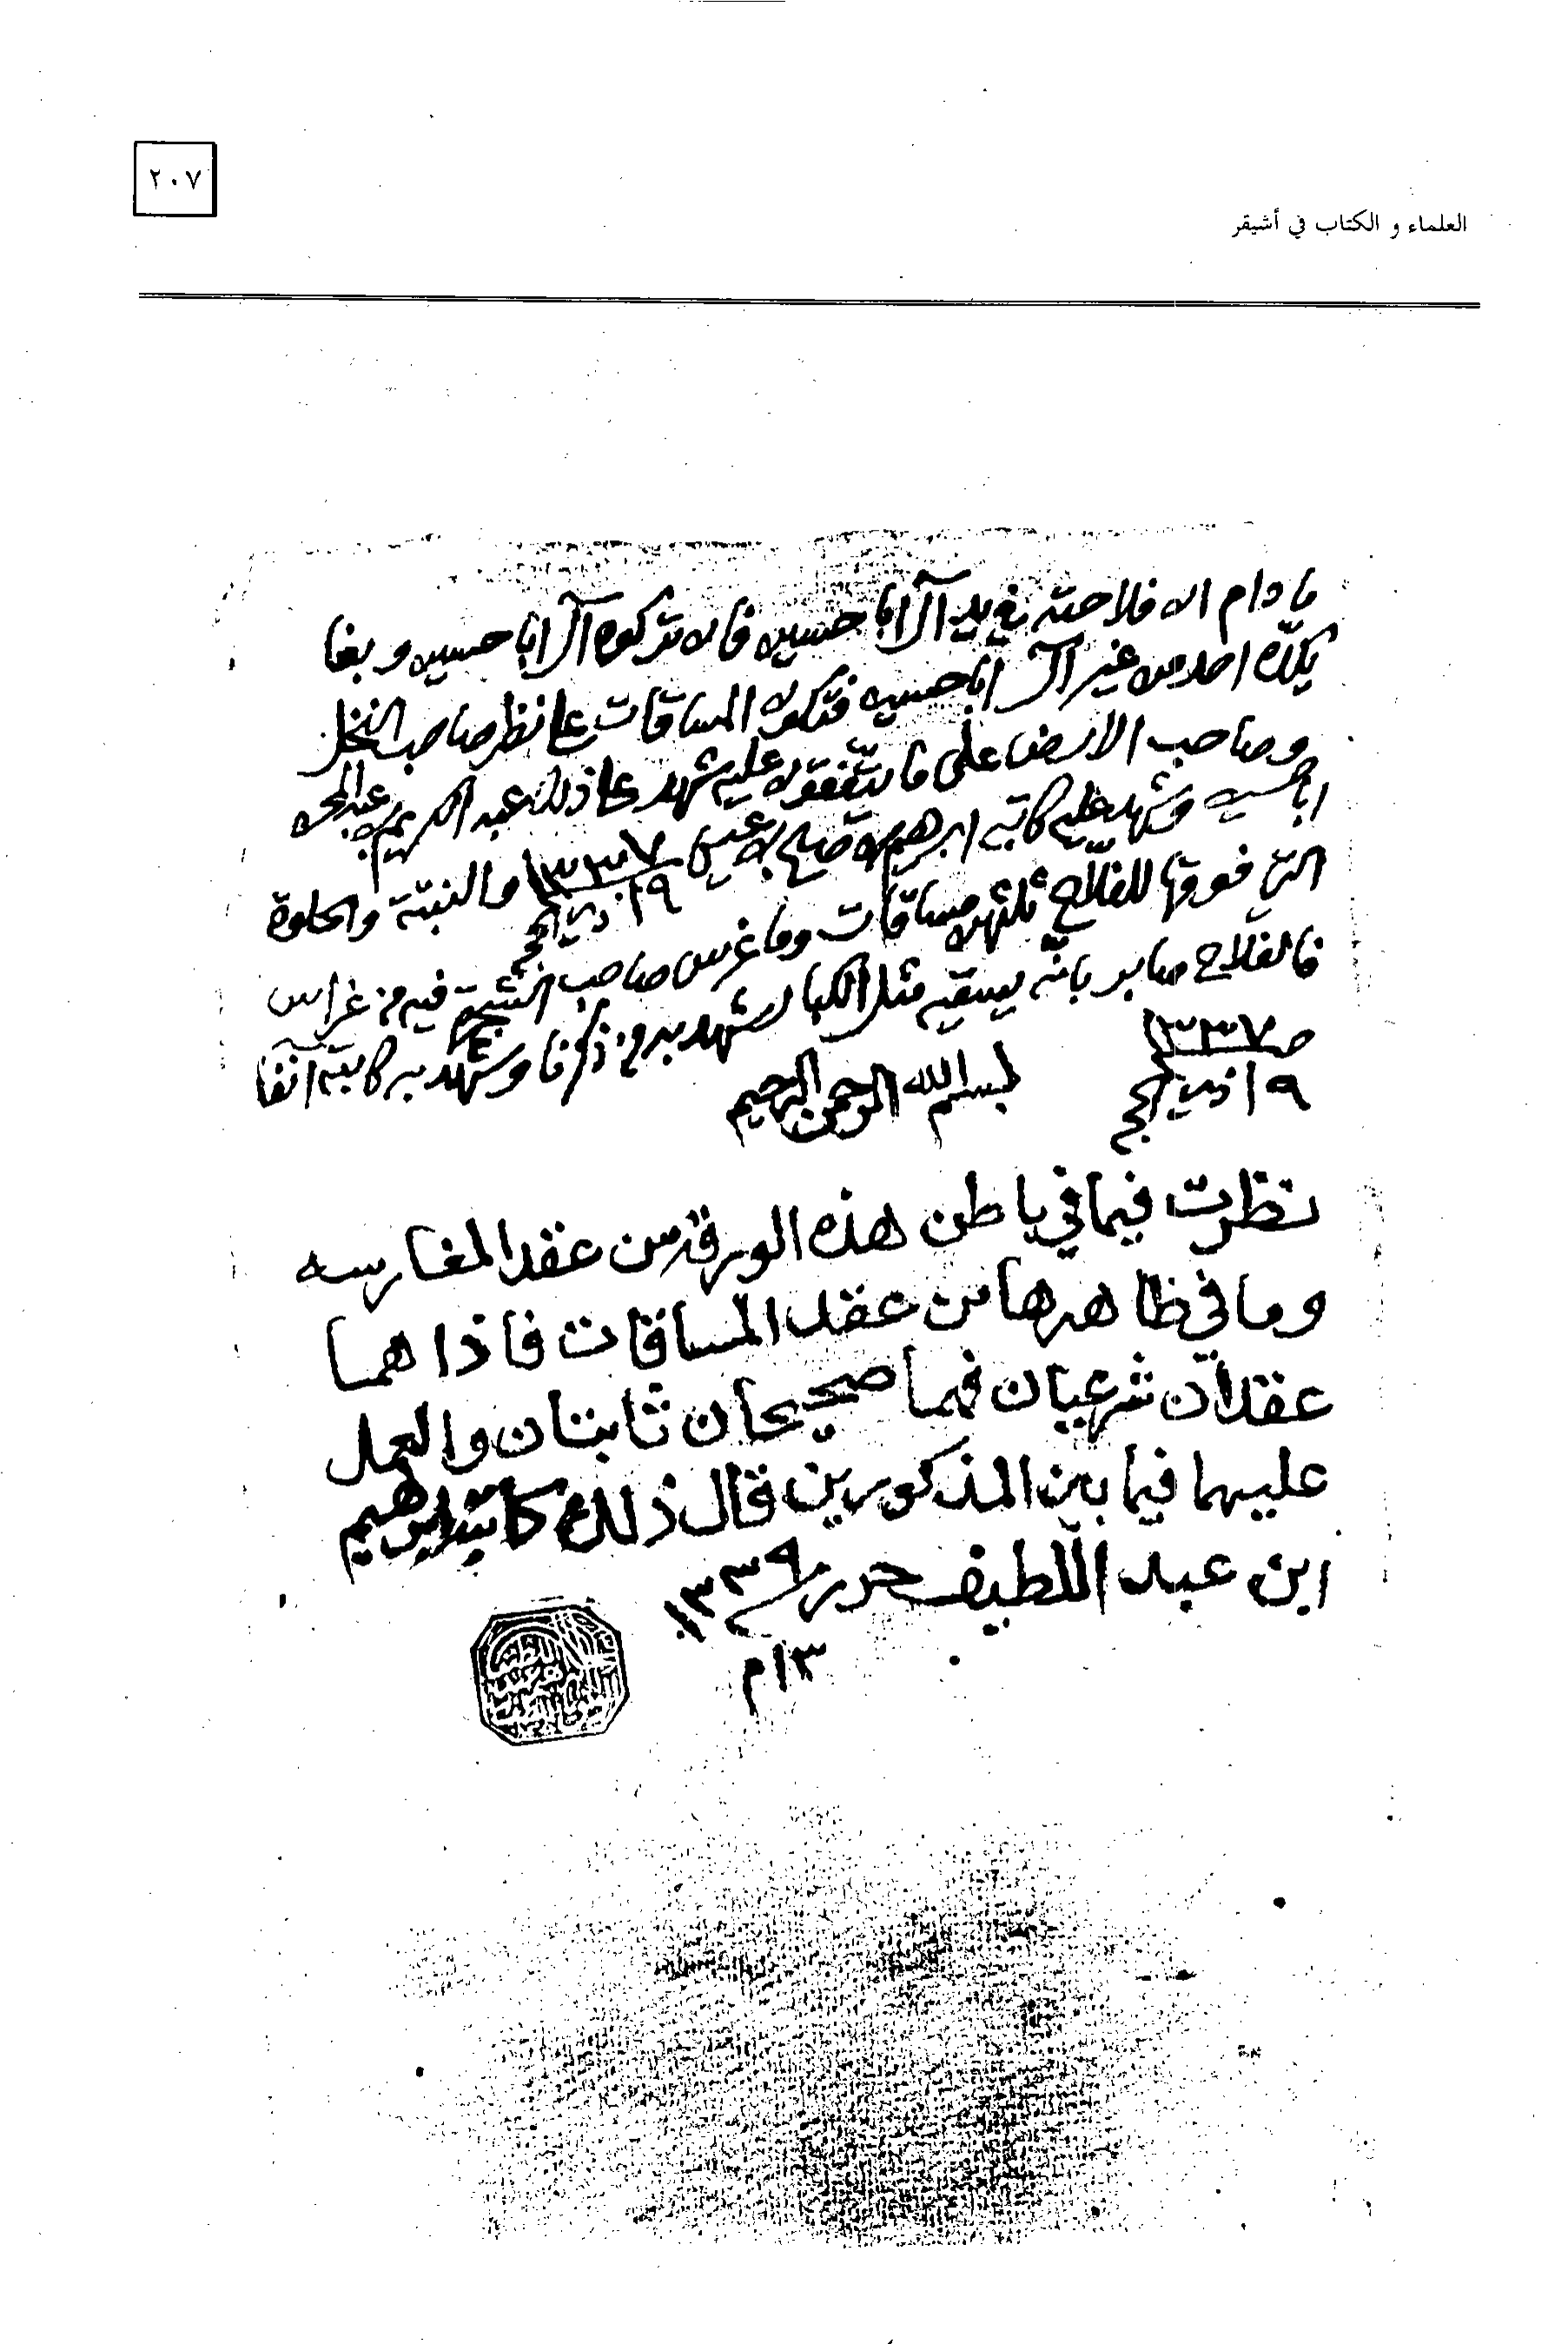 ٢٠٧
العلماء و الكتاب في أشيقر
مادام الا فلاحته في يد آل ابا حسين فان تركوه آل ابا حسين وبغا
يكدّه احد من غير آل ابا حسين فتكون المساقات على نظر صاحب النخل
وصاحب الارض على ما يتفقون عليه شهد على ذلك عبد الكريم بن عبد المحسن
ابا حسين وشهد عليه كاتبه ابرهيم بن صالح بن عيسى ١٣٣٧ والنبتة والحلوة
١٩ ذي الحجه
التي فوقها للفلاح مساقات وما غرس صاحب فيه من غراس
فالفلاح صابر بانه يسقيه مثل الكبار شهد به من ذكرنا وشهد به كاتبه آنفا
ص ١٣٣٧
١٩ ذي الحجه
بسم الله الرحمن الرحيم
نظرت فيما في باطن هذه الورقة من عقد المغارسه
وما في ظاهرها من عقد المساقات فاذا هما
عقدان شرعيان فهما صحيحان ثابتان والعمل
عليهما فيما بين المذكورين قال ذلك كاتبه ابرهيم
ابن عبد اللطيف حرر ١٣٣٩
١٣ م